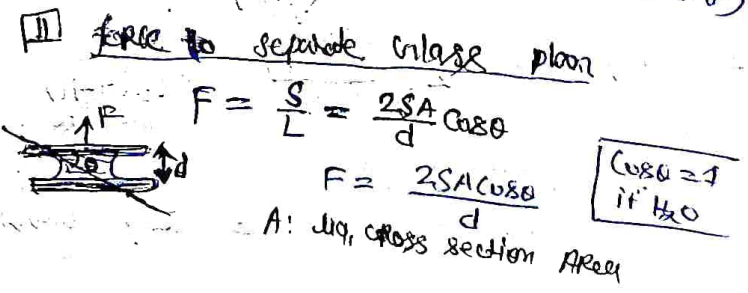 11 force to separate Glass
F = S/L = 2SA/d Cosθ
F
θ
d
F = 2SACosθ/d
Cosθ = 1
if H2O
A: liq, cross section Area